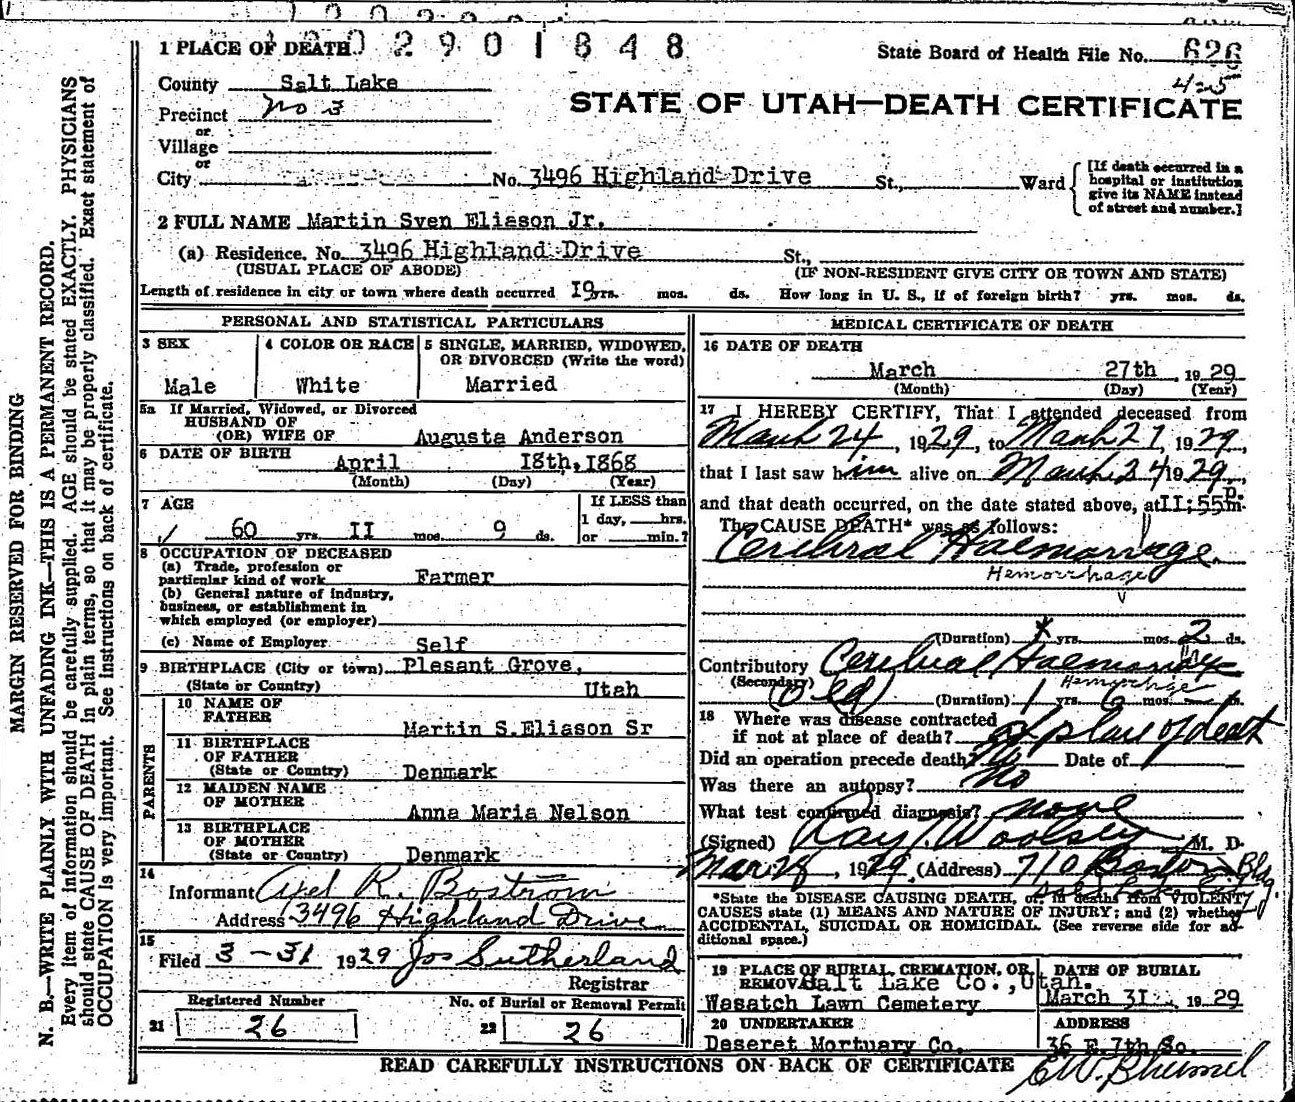 2 9 0 1 8 4 8
1 PLACE OF DEATH
State Board of Health File No. 626
County Salt Lake
425
Precinct No 3
STATE OF UTAH—DEATH CERTIFICATE
or
Village
or
City No. 3496 Highland Drive St., Ward
[If death occurred in a
hospital or institution
give its NAME instead
of street and number.]
2 FULL NAME Martin Sven Eliason Jr.
(a) Residence. No. 3496 Highland Drive St.,
(USUAL PLACE OF ABODE) (IF NON-RESIDENT GIVE CITY OR TOWN AND STATE)
Length of residence in city or town where death occurred 19 yrs. mos. ds. How long in U. S., if of foreign birth? yrs. mos. ds.
PERSONAL AND STATISTICAL PARTICULARS
3 SEX
Male
4 COLOR OR RACE
White
5 SINGLE, MARRIED, WIDOWED,
OR DIVORCED (Write the word)
Married
5a If Married, Widowed, or Divorced
HUSBAND OF
(OR) WIFE OF Augusta Anderson
6 DATE OF BIRTH
April 18th, 1868
(Month) (Day) (Year)
7 AGE
60 yrs. II mos. 9 ds.
If LESS than
1 day, hrs.
or min.?
8 OCCUPATION OF DECEASED
(a) Trade, profession or
particular kind of work Farmer
(b) General nature of industry,
business, or establishment in
which employed (or employer)
(c) Name of Employer Self
9 BIRTHPLACE (City or town) Plesant Grove,
(State or Country) Utah
PARENTS
10 NAME OF
FATHER Martin S.Eliason Sr
11 BIRTHPLACE
OF FATHER
(State or Country) Denmark
12 MAIDEN NAME
OF MOTHER Anna Maria Nelson
13 BIRTHPLACE
OF MOTHER
(State or Country) Denmark
14
Informant Axel R. Bostrom
Address 3496 Highland Drive
15
Filed 3-31 1929 Jos Sutherland
Registrar
Registered Number
21 26
No. of Burial or Removal Permit
22 26
MEDICAL CERTIFICATE OF DEATH
16 DATE OF DEATH
March 27th, 1929
(Month) (Day) (Year)
17 I HEREBY CERTIFY, That I attended deceased from
March 24, 1929, to March 27, 1929,
that I last saw him alive on March 24 1929,
and that death occurred, on the date stated above, at II;55 P. m.
The CAUSE DEATH* was as follows:
Cerebral Haemorrage
Hemorrhage
(Duration) yrs. mos. 2 ds.
Contributory Cerebral Haemorrage
(Secondary) Hemorrhage
(Old) (Duration) 1 yrs. 6 mos. ds.
18 Where was disease contracted
if not at place of death? at place of death
Did an operation precede death? No Date of
Was there an autopsy? No
What test confirmed diagnosis? none
(Signed) Ray T. Woolsey M. D.
Mar 28, 1929. (Address) 710 Boston Bldg.
Salt Lake City
*State the DISEASE CAUSING DEATH, or, in deaths from VIOLENT
CAUSES state (1) MEANS AND NATURE OF INJURY; and (2) whether
ACCIDENTAL, SUICIDAL OR HOMICIDAL. (See reverse side for ad-
ditional space.)
19 PLACE OF BURIAL, CREMATION, OR
REMOVAL Salt Lake Co., Utah.
Wasatch Lawn Cemetery
DATE OF BURIAL
March 31 1929
20 UNDERTAKER
Deseret Mortuary Co.
ADDRESS
36 E 7th So.
READ CAREFULLY INSTRUCTIONS ON BACK OF CERTIFICATE
MARGIN RESERVED FOR BINDING
N. B.—WRITE PLAINLY WITH UNFADING INK—THIS IS A PERMANENT RECORD.
Every item of information should be carefully supplied. AGE should be stated EXACTLY. PHYSICIANS
should state CAUSE OF DEATH in plain terms, so that it may be properly classified. Exact statement of
OCCUPATION is very important. See instructions on back of certificate.